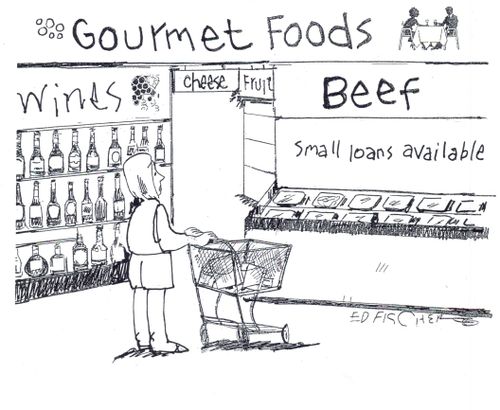 Gourmet Foods
Wines
cheese
Fruit
Beef
small loans available
ED FISCHER